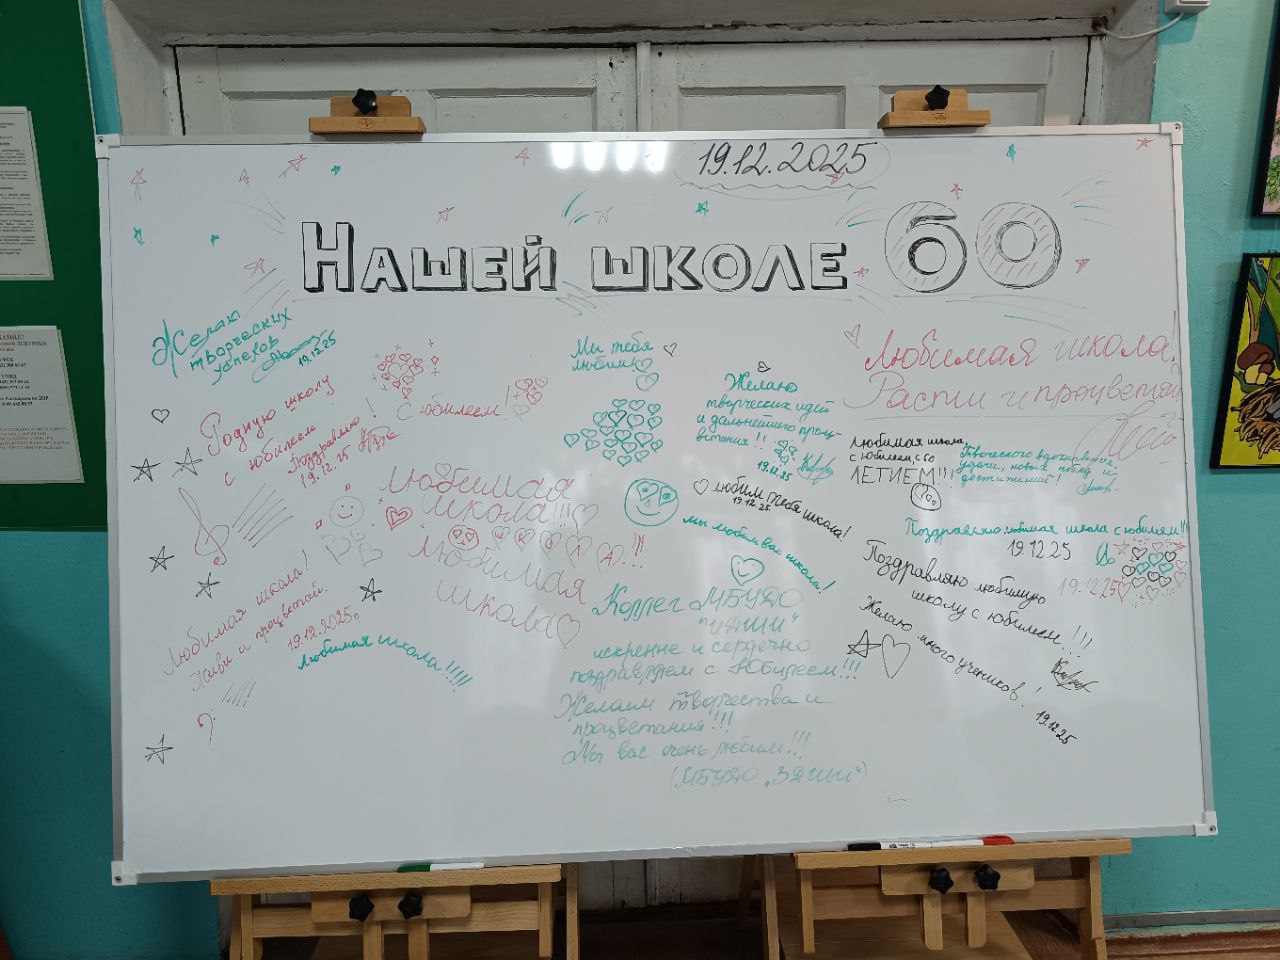 19.12.2025
НАШЕЙ ШКОЛЕ 60
Желаю
творческих
успехов
19.12.25
Родную школу
с юбилеем!
Поздравляю
19.12.25
С юбилеем!
Мы тебя
любим!
Желаю
творческих идей
и дальнейшего проц-
ветания!!
19.12.25
Любимая школа!
Расти и процветай
Любимая школа,
с юбилеем, со
ЛЕТИЕМ!!!
Творческого вдохновения,
удачи, новых побед и
достижений!
Любимая
школа!!!
Любимая
школа
любим тебя школа!
19.12.25
мы любим вас школа!
Поздравляю любимая школа с юбилеям!!!
19.12.25
19.12.25
Поздравляю любимую
школу с юбилеем!!!
Желаю много учеников!
19.12.25
Любимая школа!
Живи и процветай.
19.12.2025г
Любимая школа!!!!!
Коллег МБУДО
искренне и сердечно
поздравляем с Юбилеем!!!
Желаем творчества и
процветания!!!
Мы вас очень любим!!!
(МБУДО „3ДШИ“)